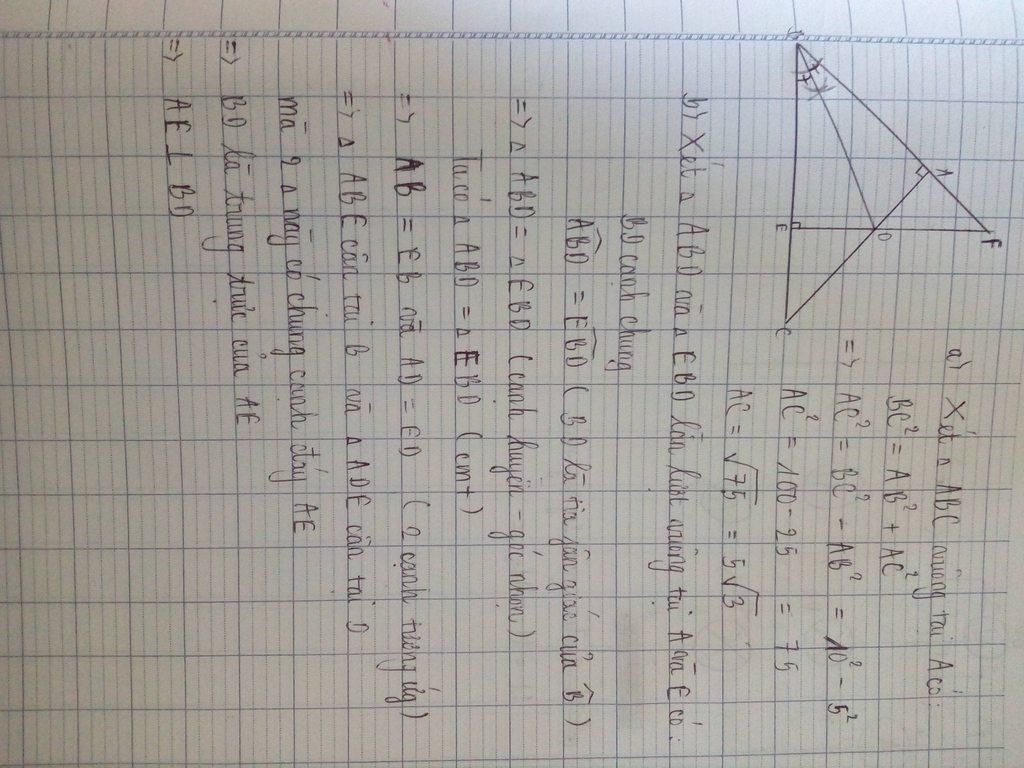 B
A
F
D
E
C
a) Xét Δ ABC vuông tại A có:
BC² = AB² + AC²
=> AC² = BC² - AB² = 10² - 5²
AC² = 100 - 25 = 75
AC = √75 = 5√3
b) Xét Δ ABD và Δ EBD lần lượt vuông tại A và E có:
BD cạnh chung
ABD̂ = EBD̂ ( BD là tia phân giác của B̂ )
=> Δ ABD = Δ EBD ( cạnh huyền - góc nhọn )
Ta có Δ ABD = Δ EBD ( cmt )
=> AB = EB và AD = ED ( 2 cạnh tương ứng )
=> Δ ABE cân tại B và Δ ADE cân tại D
mà 2 Δ này có chung cạnh đáy AE
=> BD là trung trực của AE
=> AE ⊥ BD